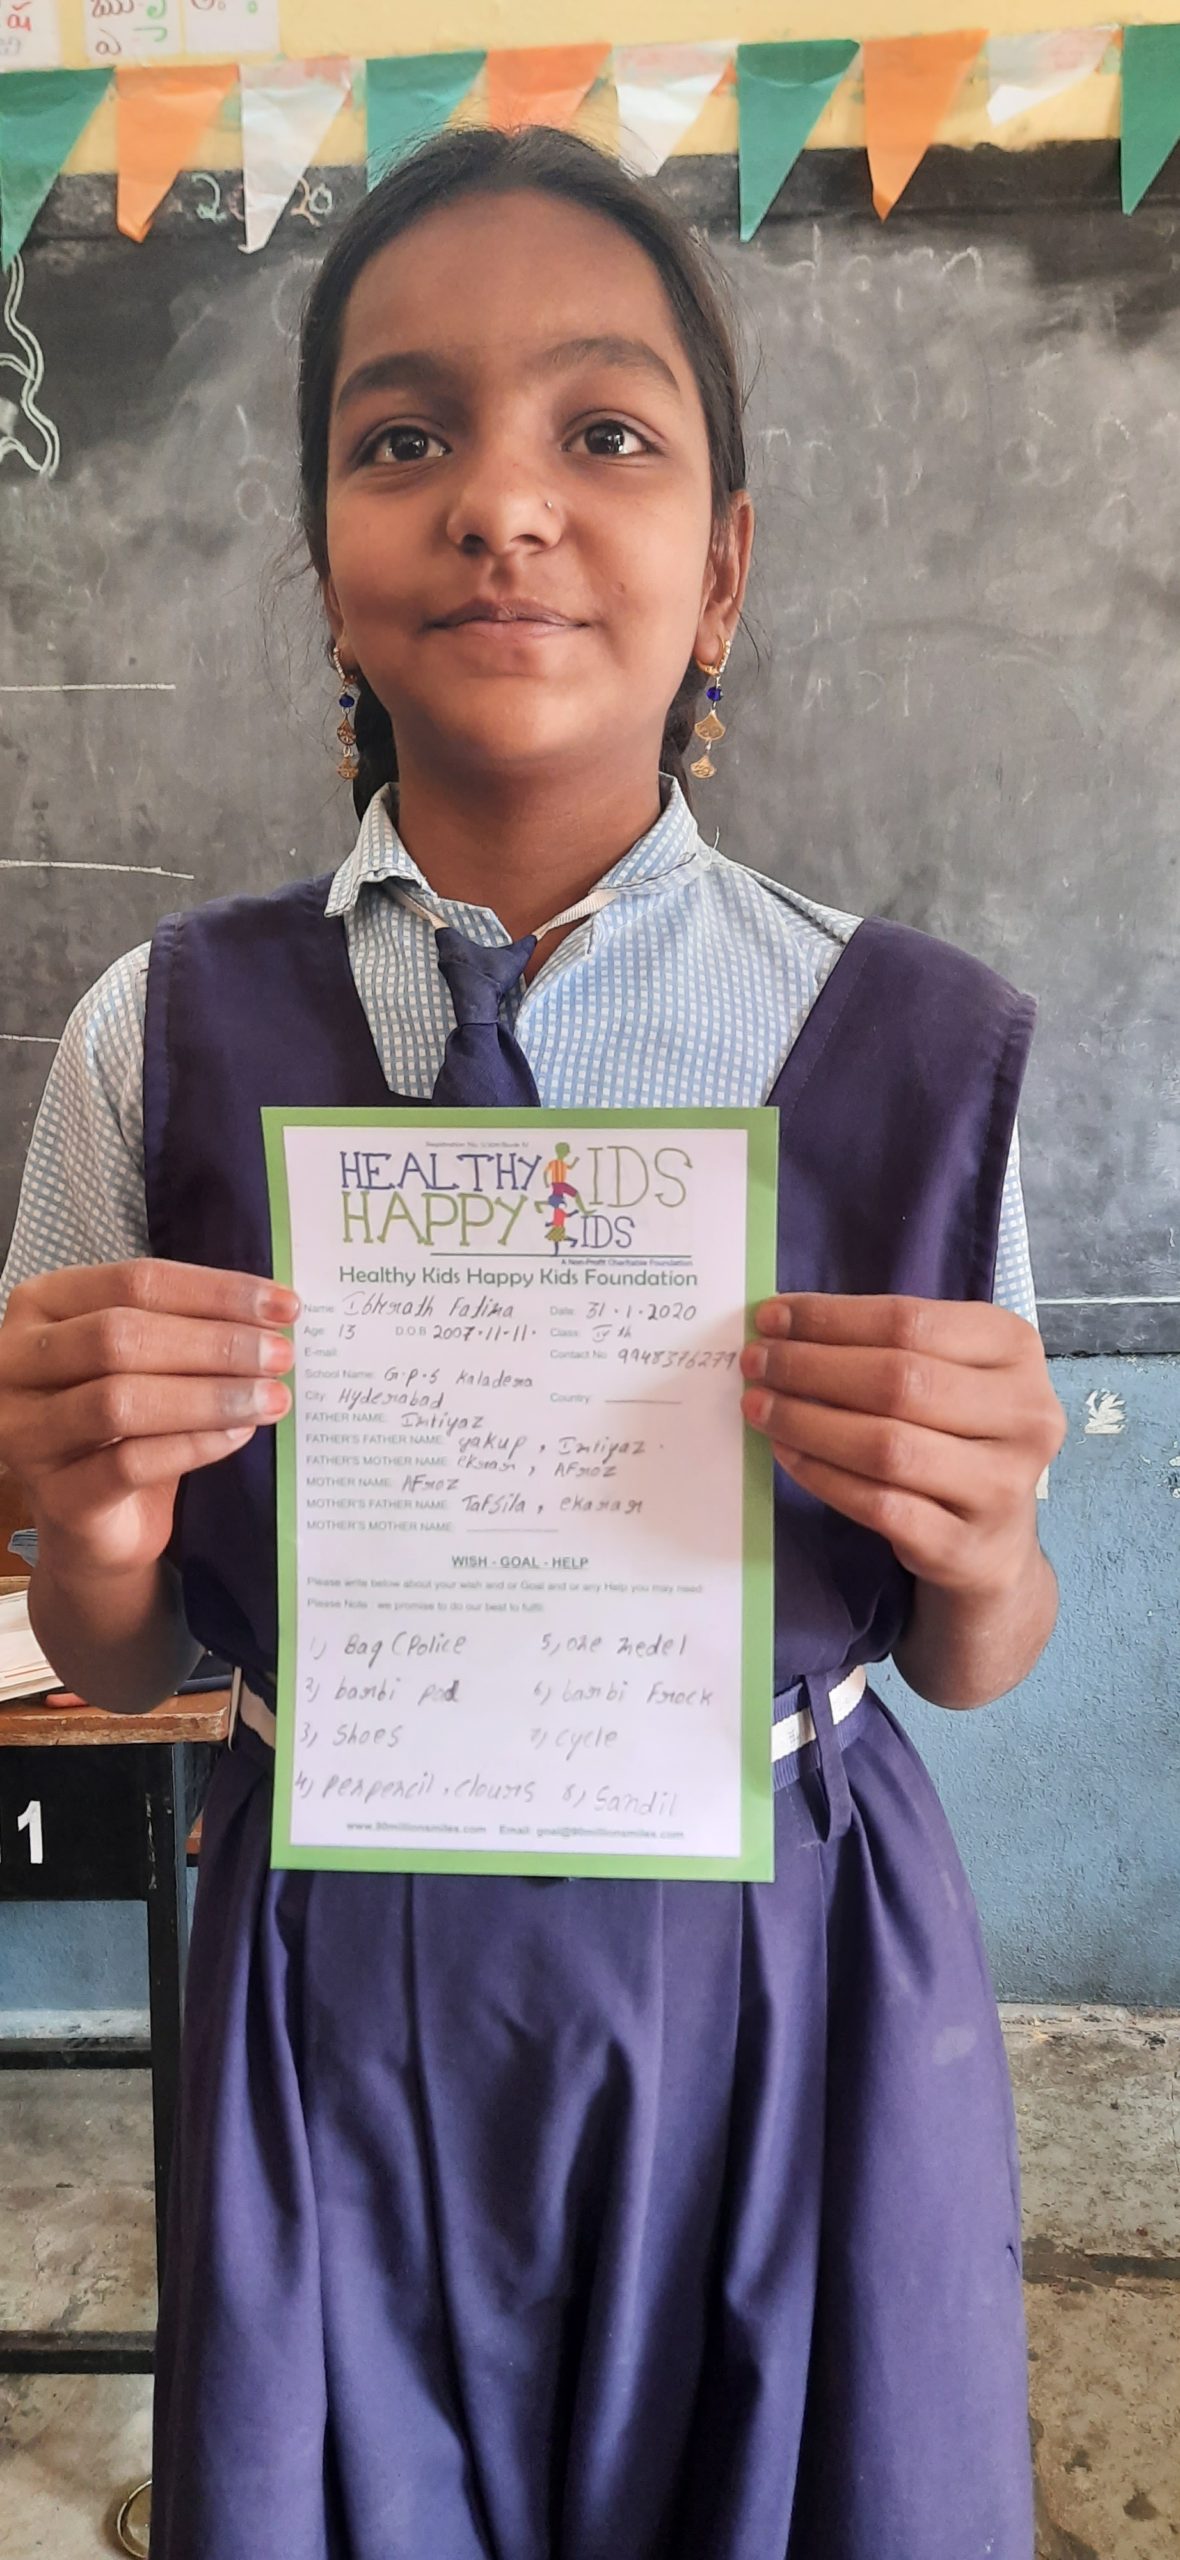 2020
HEALTHY KIDS
HAPPY KIDS
A Non-Profit Charitable Foundation
Healthy Kids Happy Kids Foundation
Name: Ibherath Fatima Date: 31.1.2020
Age: 13 D.O.B 2007.11.11. Class: IV th
E-mail: Contact No 9948376279
School Name: G.P.S Kaladera
City: Hyderabad Country:
FATHER NAME: Imtiyaz
FATHER'S FATHER NAME: yakup, Imtiyaz.
FATHER'S MOTHER NAME: ekram, AFroz
MOTHER NAME: AFroz
MOTHER'S FATHER NAME: Tafsila, ekaram
MOTHER'S MOTHER NAME:
WISH - GOAL - HELP
Please write below about your wish and or Goal and or any Help you may need
Please Note : we promise to do our best to fulfil
1) Bag (Police 5, one medel
2) barbi pad 6) barbi Frock
3, Shoes 7) cycle
4) penpencil, clours 8, Sandil
www.90millionsmiles.com Email: goal@90millionsmiles.com
1